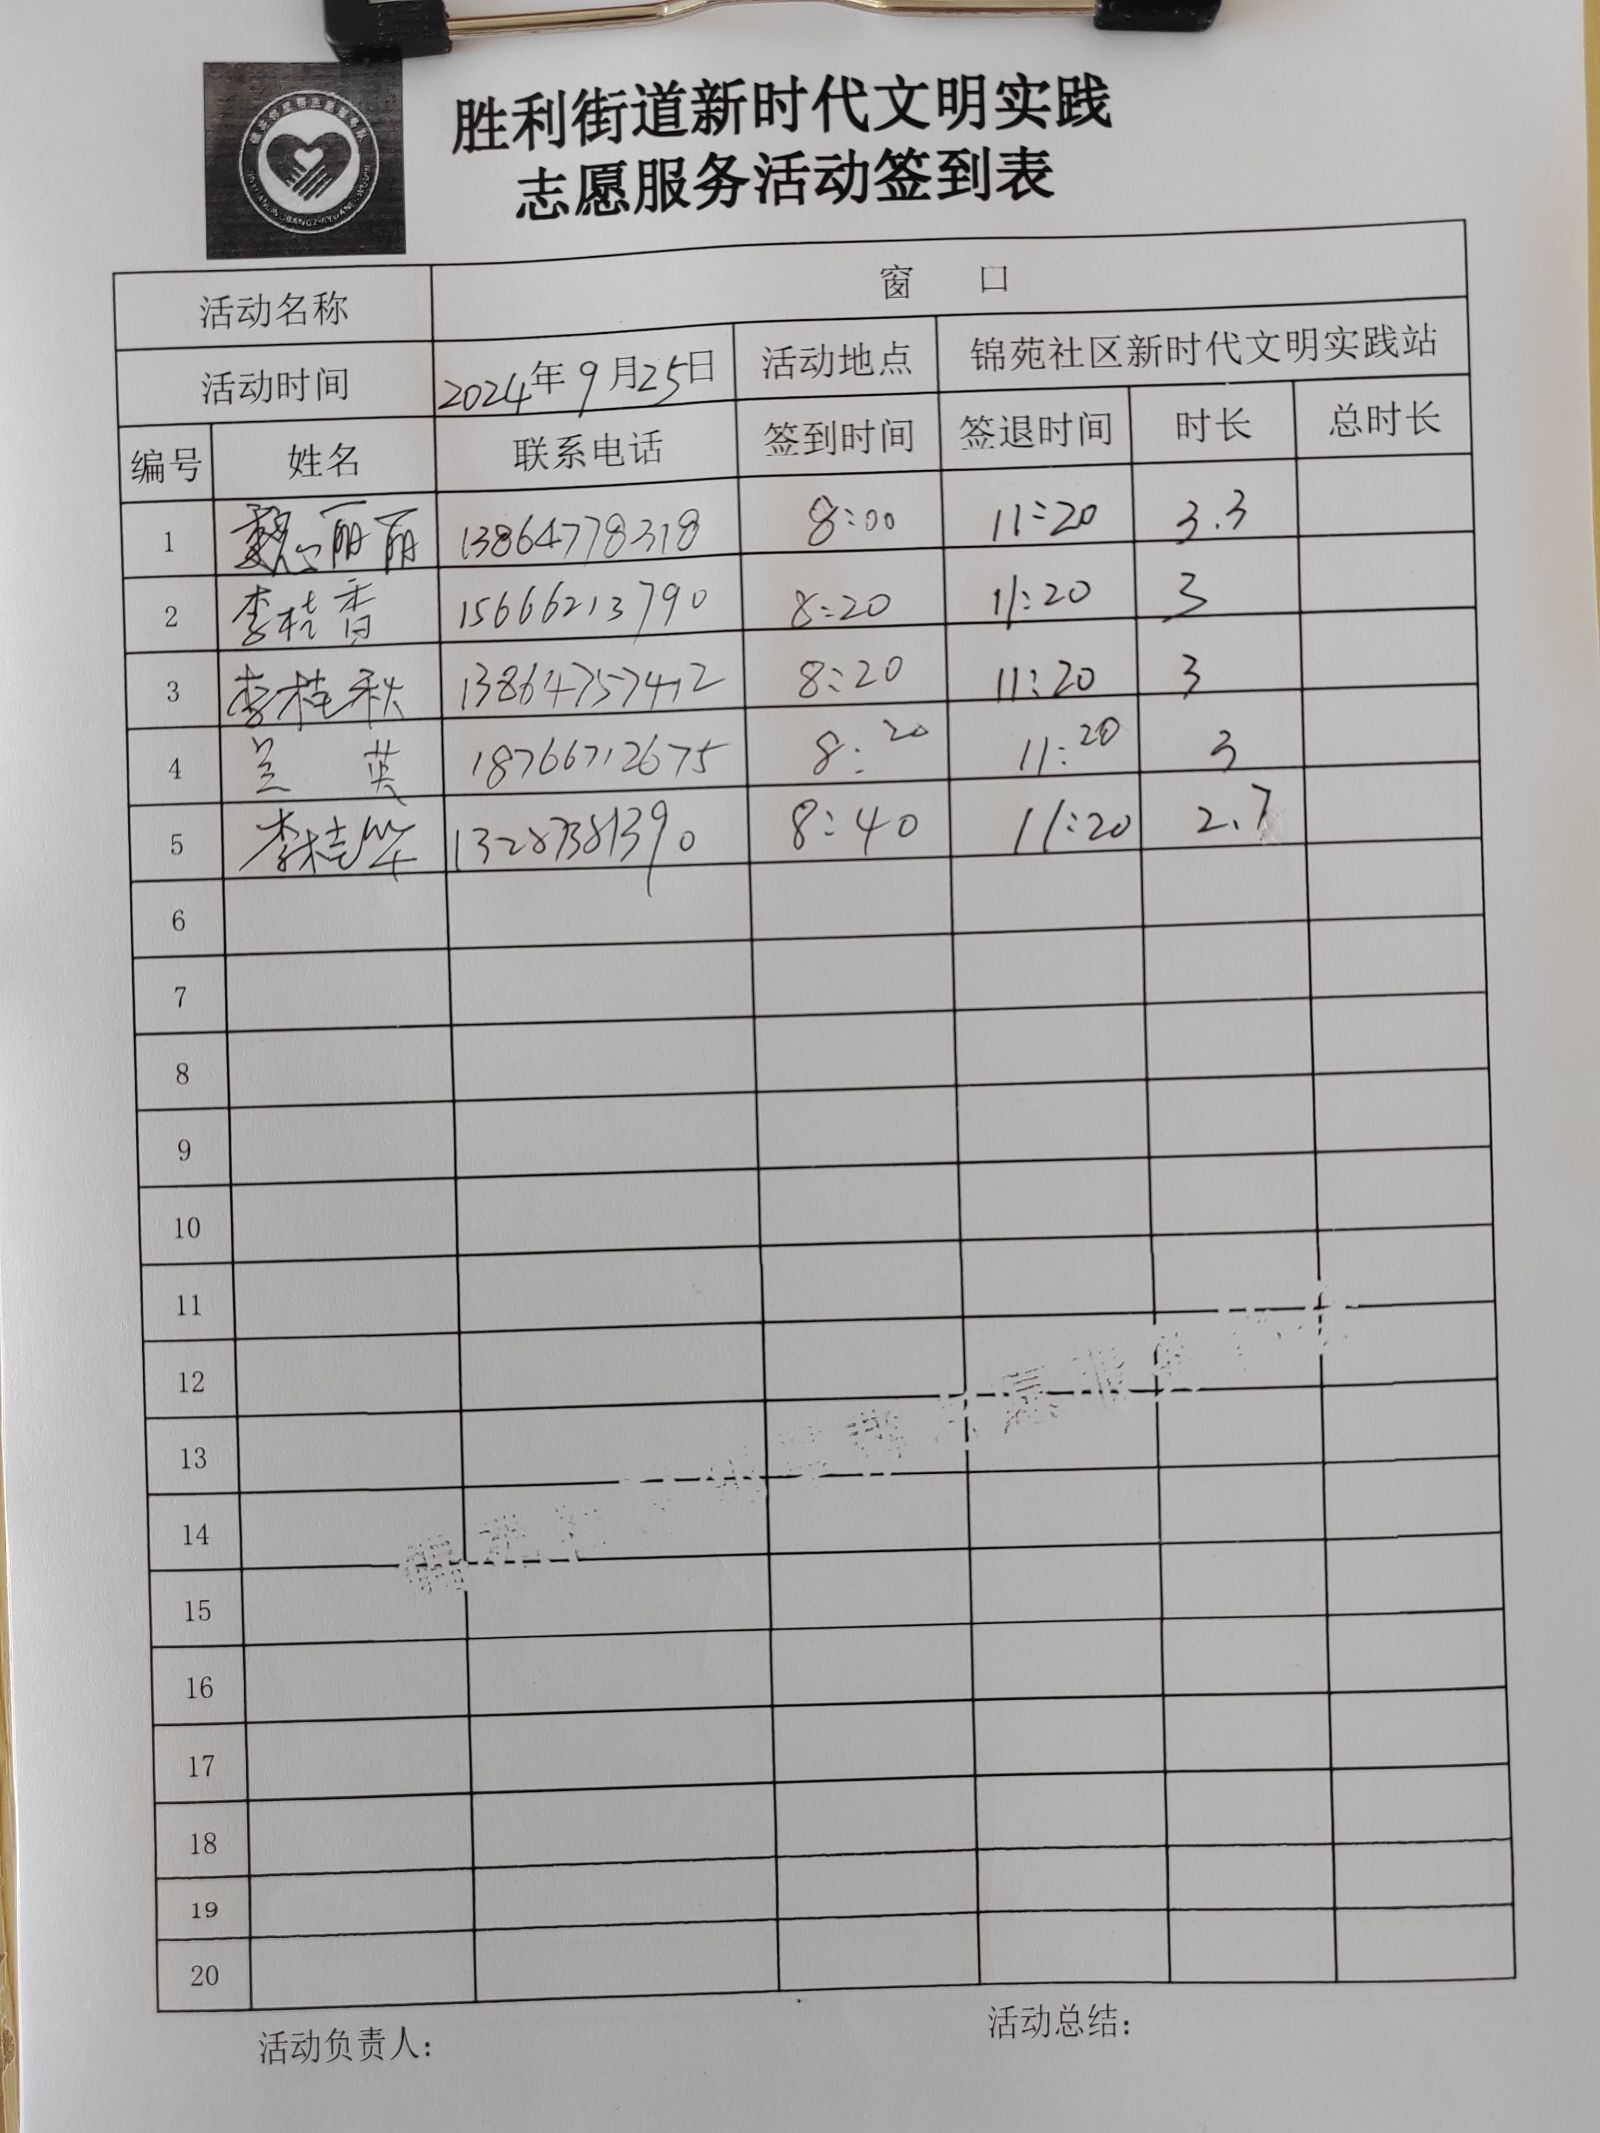 胜利街道新时代文明实践
志愿服务活动签到表
活动名称 窗 口
活动时间 2024年9月25日 活动地点 锦苑社区新时代文明实践站
编号 姓名 联系电话 签到时间 签退时间 时长 总时长
1 魏丽丽 13864778318 8:00 11:20 3.3
2 李桂香 15666213790 8:20 11:20 3
3 李桂秋 13864757412 8:20 11:20 3
4 兰英 18766712675 8:20 11:20 3
5 李桂华 13287381390 8:40 11:20 2.7
6
7
8
9
10
11
12
13
14
15
16
17
18
19
20
活动负责人: 活动总结: